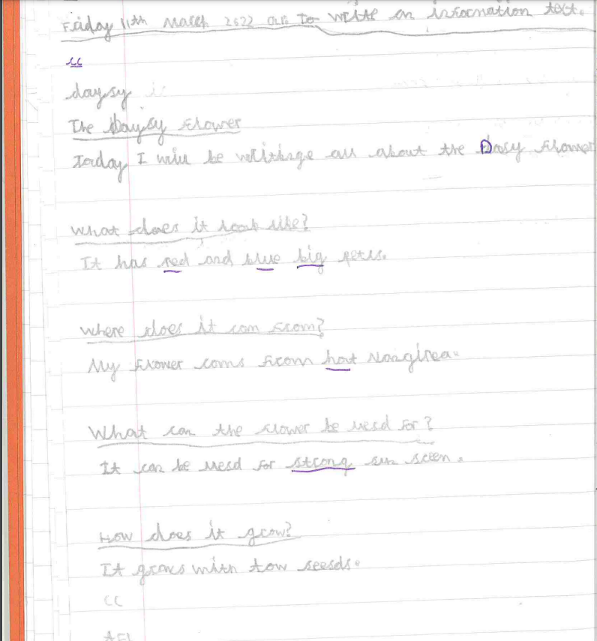 Friday 11th March 2022 an to write an information text.
cc
daysy
The Daysy Flower
Today I will be writinge all about the Dasy Flower
what does it look like?
It has red and blue big pets.
where does it com from?
My Flower coms from hot
What can the Flower be used for?
It can be used for strong sun sceen.
How does it grow?
It grows with tow seesds.
cc